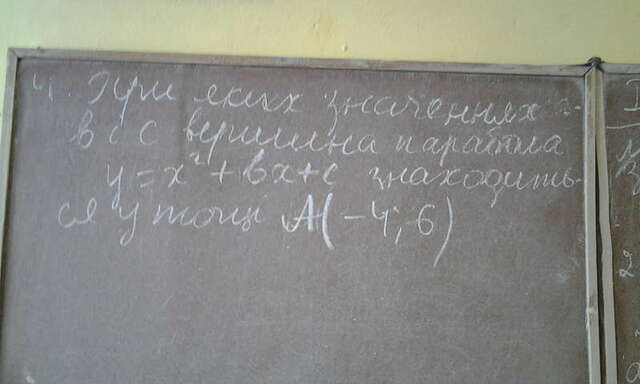 4. При яких значеннях
в і с вершина парабола
y = x² + bx + c знаходить-
ся у точці А(-4; 6)